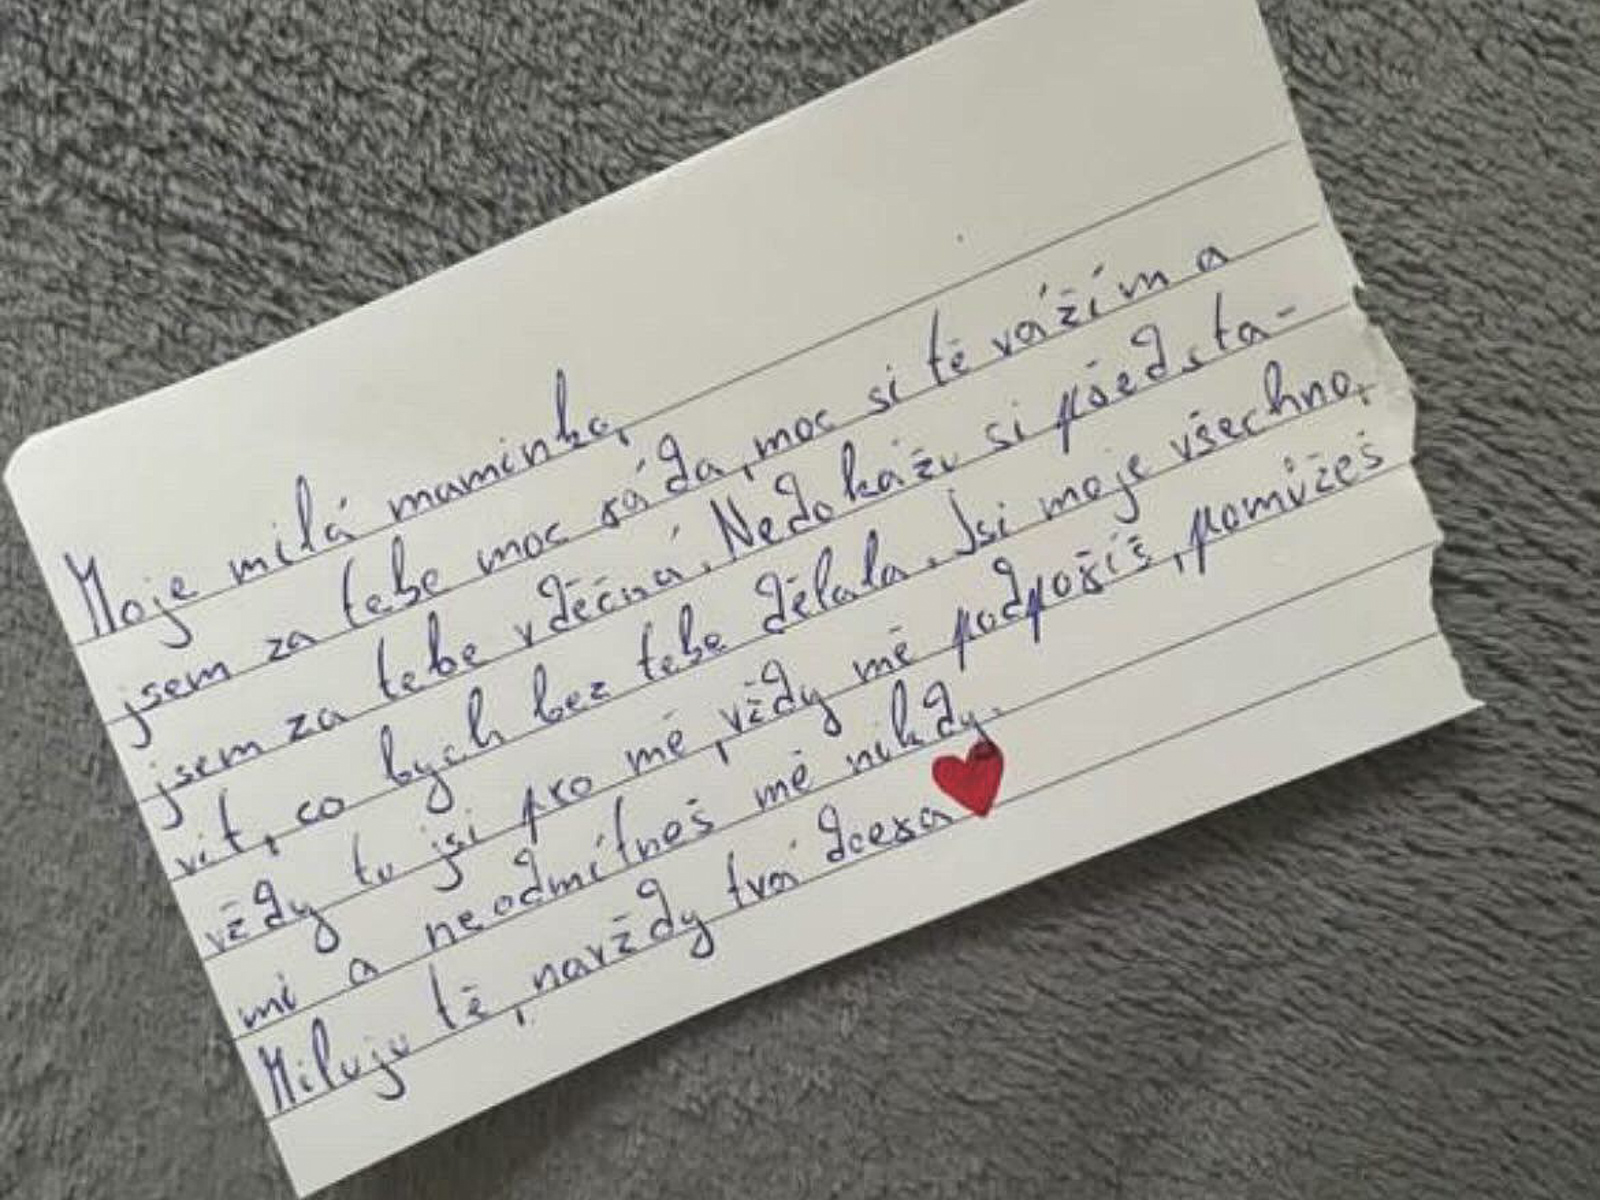 Moje milá maminko,
jsem za tebe moc ráda, moc si tě vážím a
jsem za tebe vděčná. Nedokážu si předsta-
vit, co bych bez tebe dělala. Jsi moje všechno,
vždy tu jsi pro mě, vždy mě podpoříš, pomůžeš
mi a neodmítneš mě nikdy.
Miluju tě, navždy tvá dcera